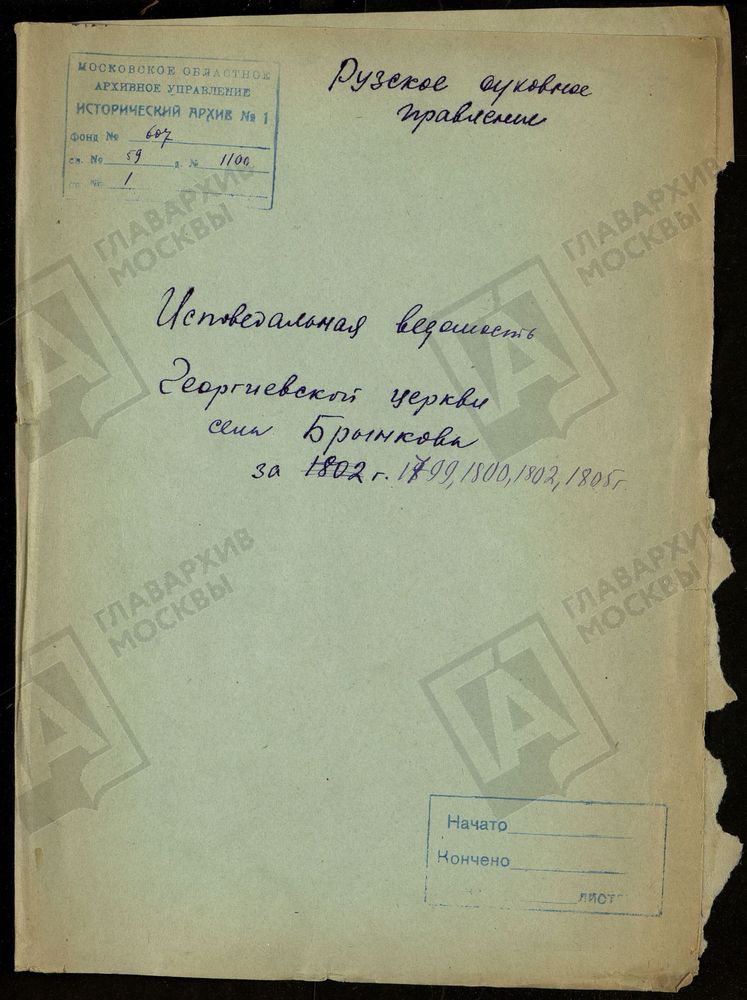 МОСКОВСКОЕ ОБЛАСТНОЕ
АРХИВНОЕ УПРАВЛЕНИЕ
ИСТОРИЧЕСКИЙ АРХИВ № 1
фонд № 607
св. № 59 д. № 1100
оп. № 1
Рузское духовное
правление
Исповедальная ведомость
Георгиевской церкви
села Брынкова
за 1802 г. 1799, 1800, 1802, 1805 г.
Начато
Кончено
лист
ГЛАВАРХИВ
МОСКВЫ
ГЛАВАРХИВ
МОСКВЫ
ГЛАВАРХИВ
МОСКВЫ
ГЛАВАРХИВ
МОСКВЫ